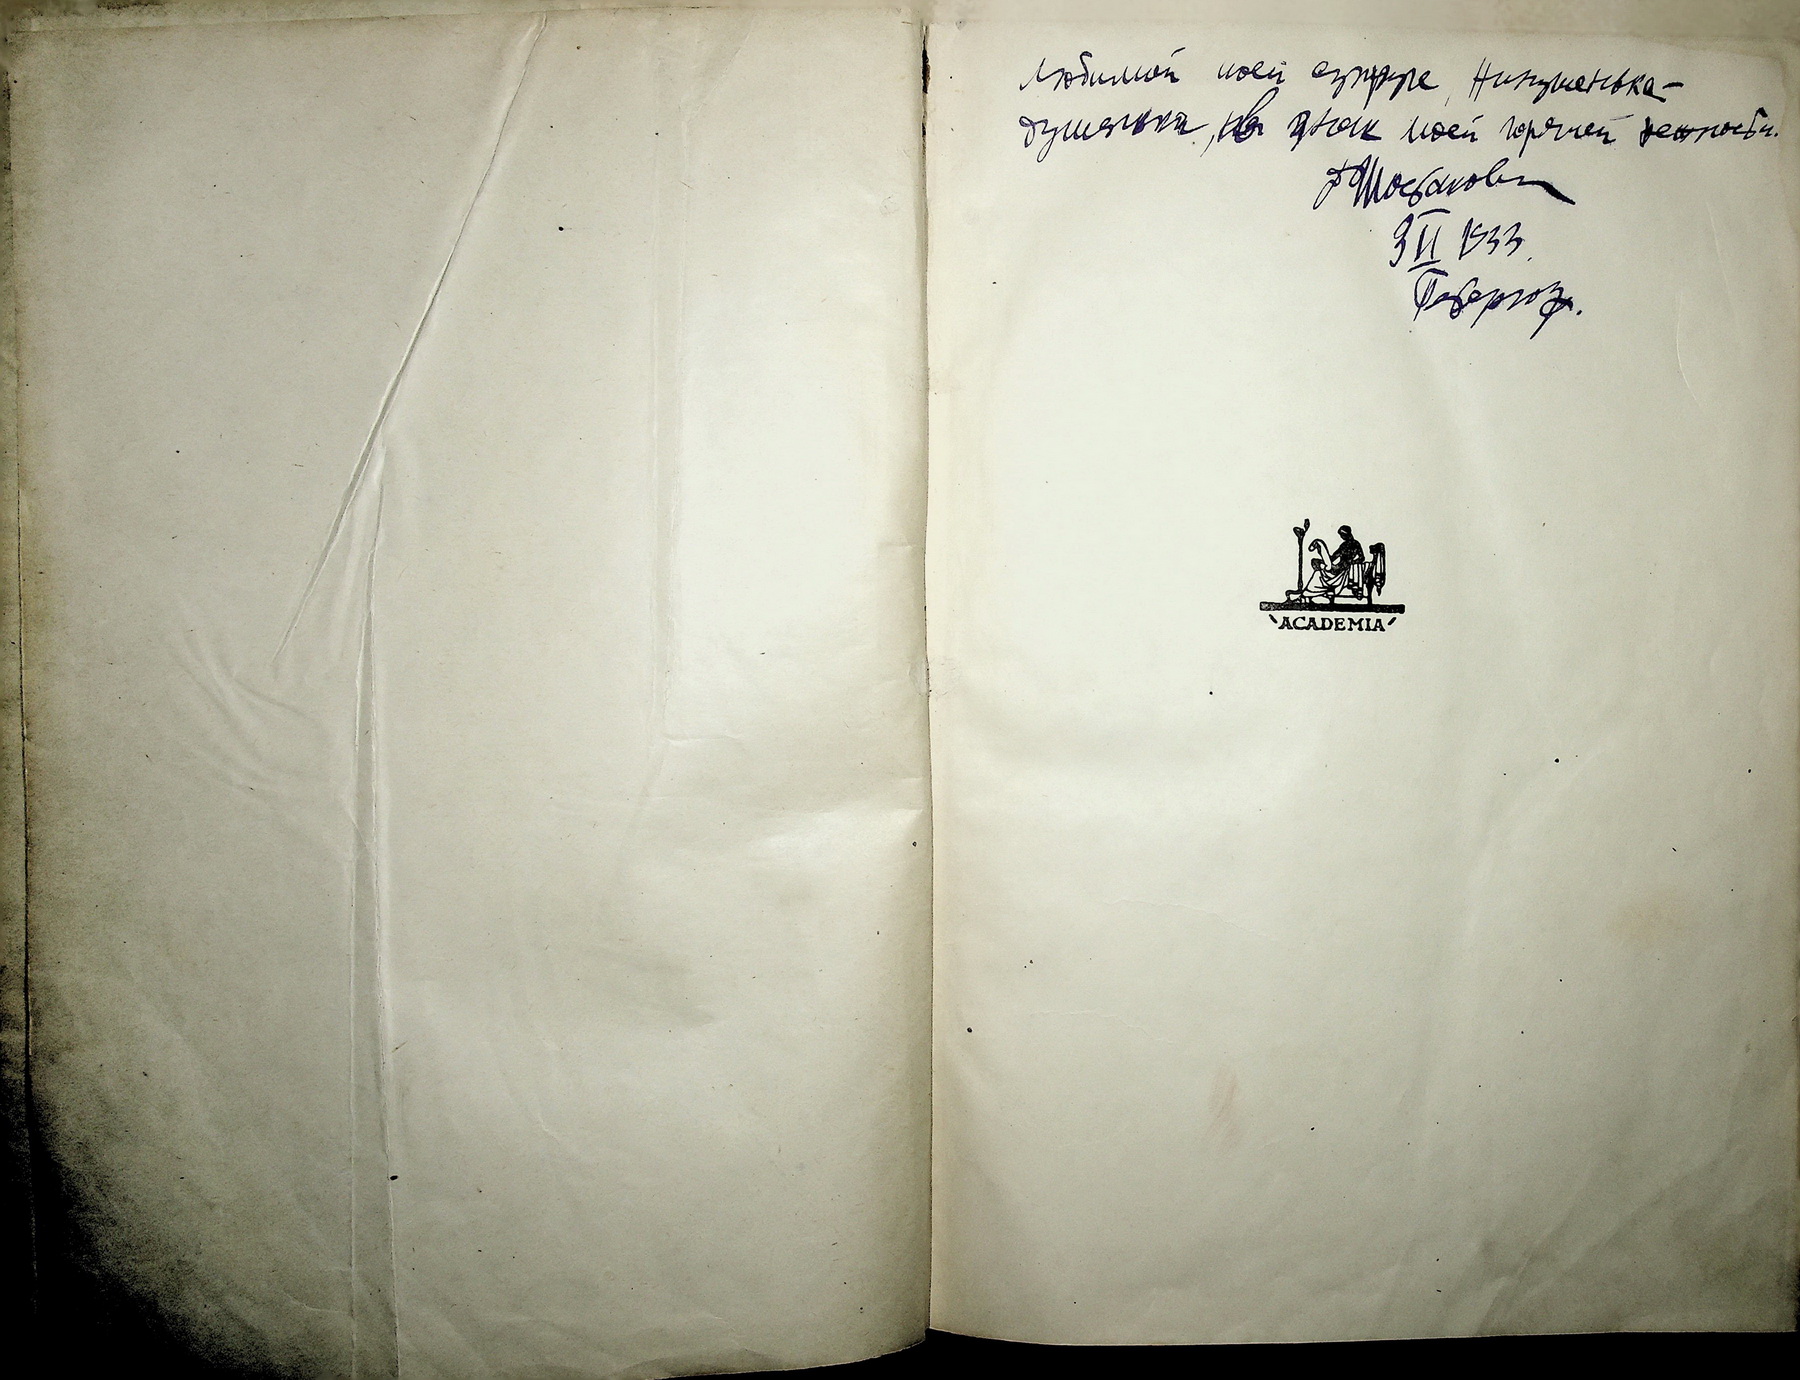 Любимой моей супруге, Нинушенька-
душенька, на знак моей горячей нежности.
Д Шостакович
9 II 1933.
ACADEMIA